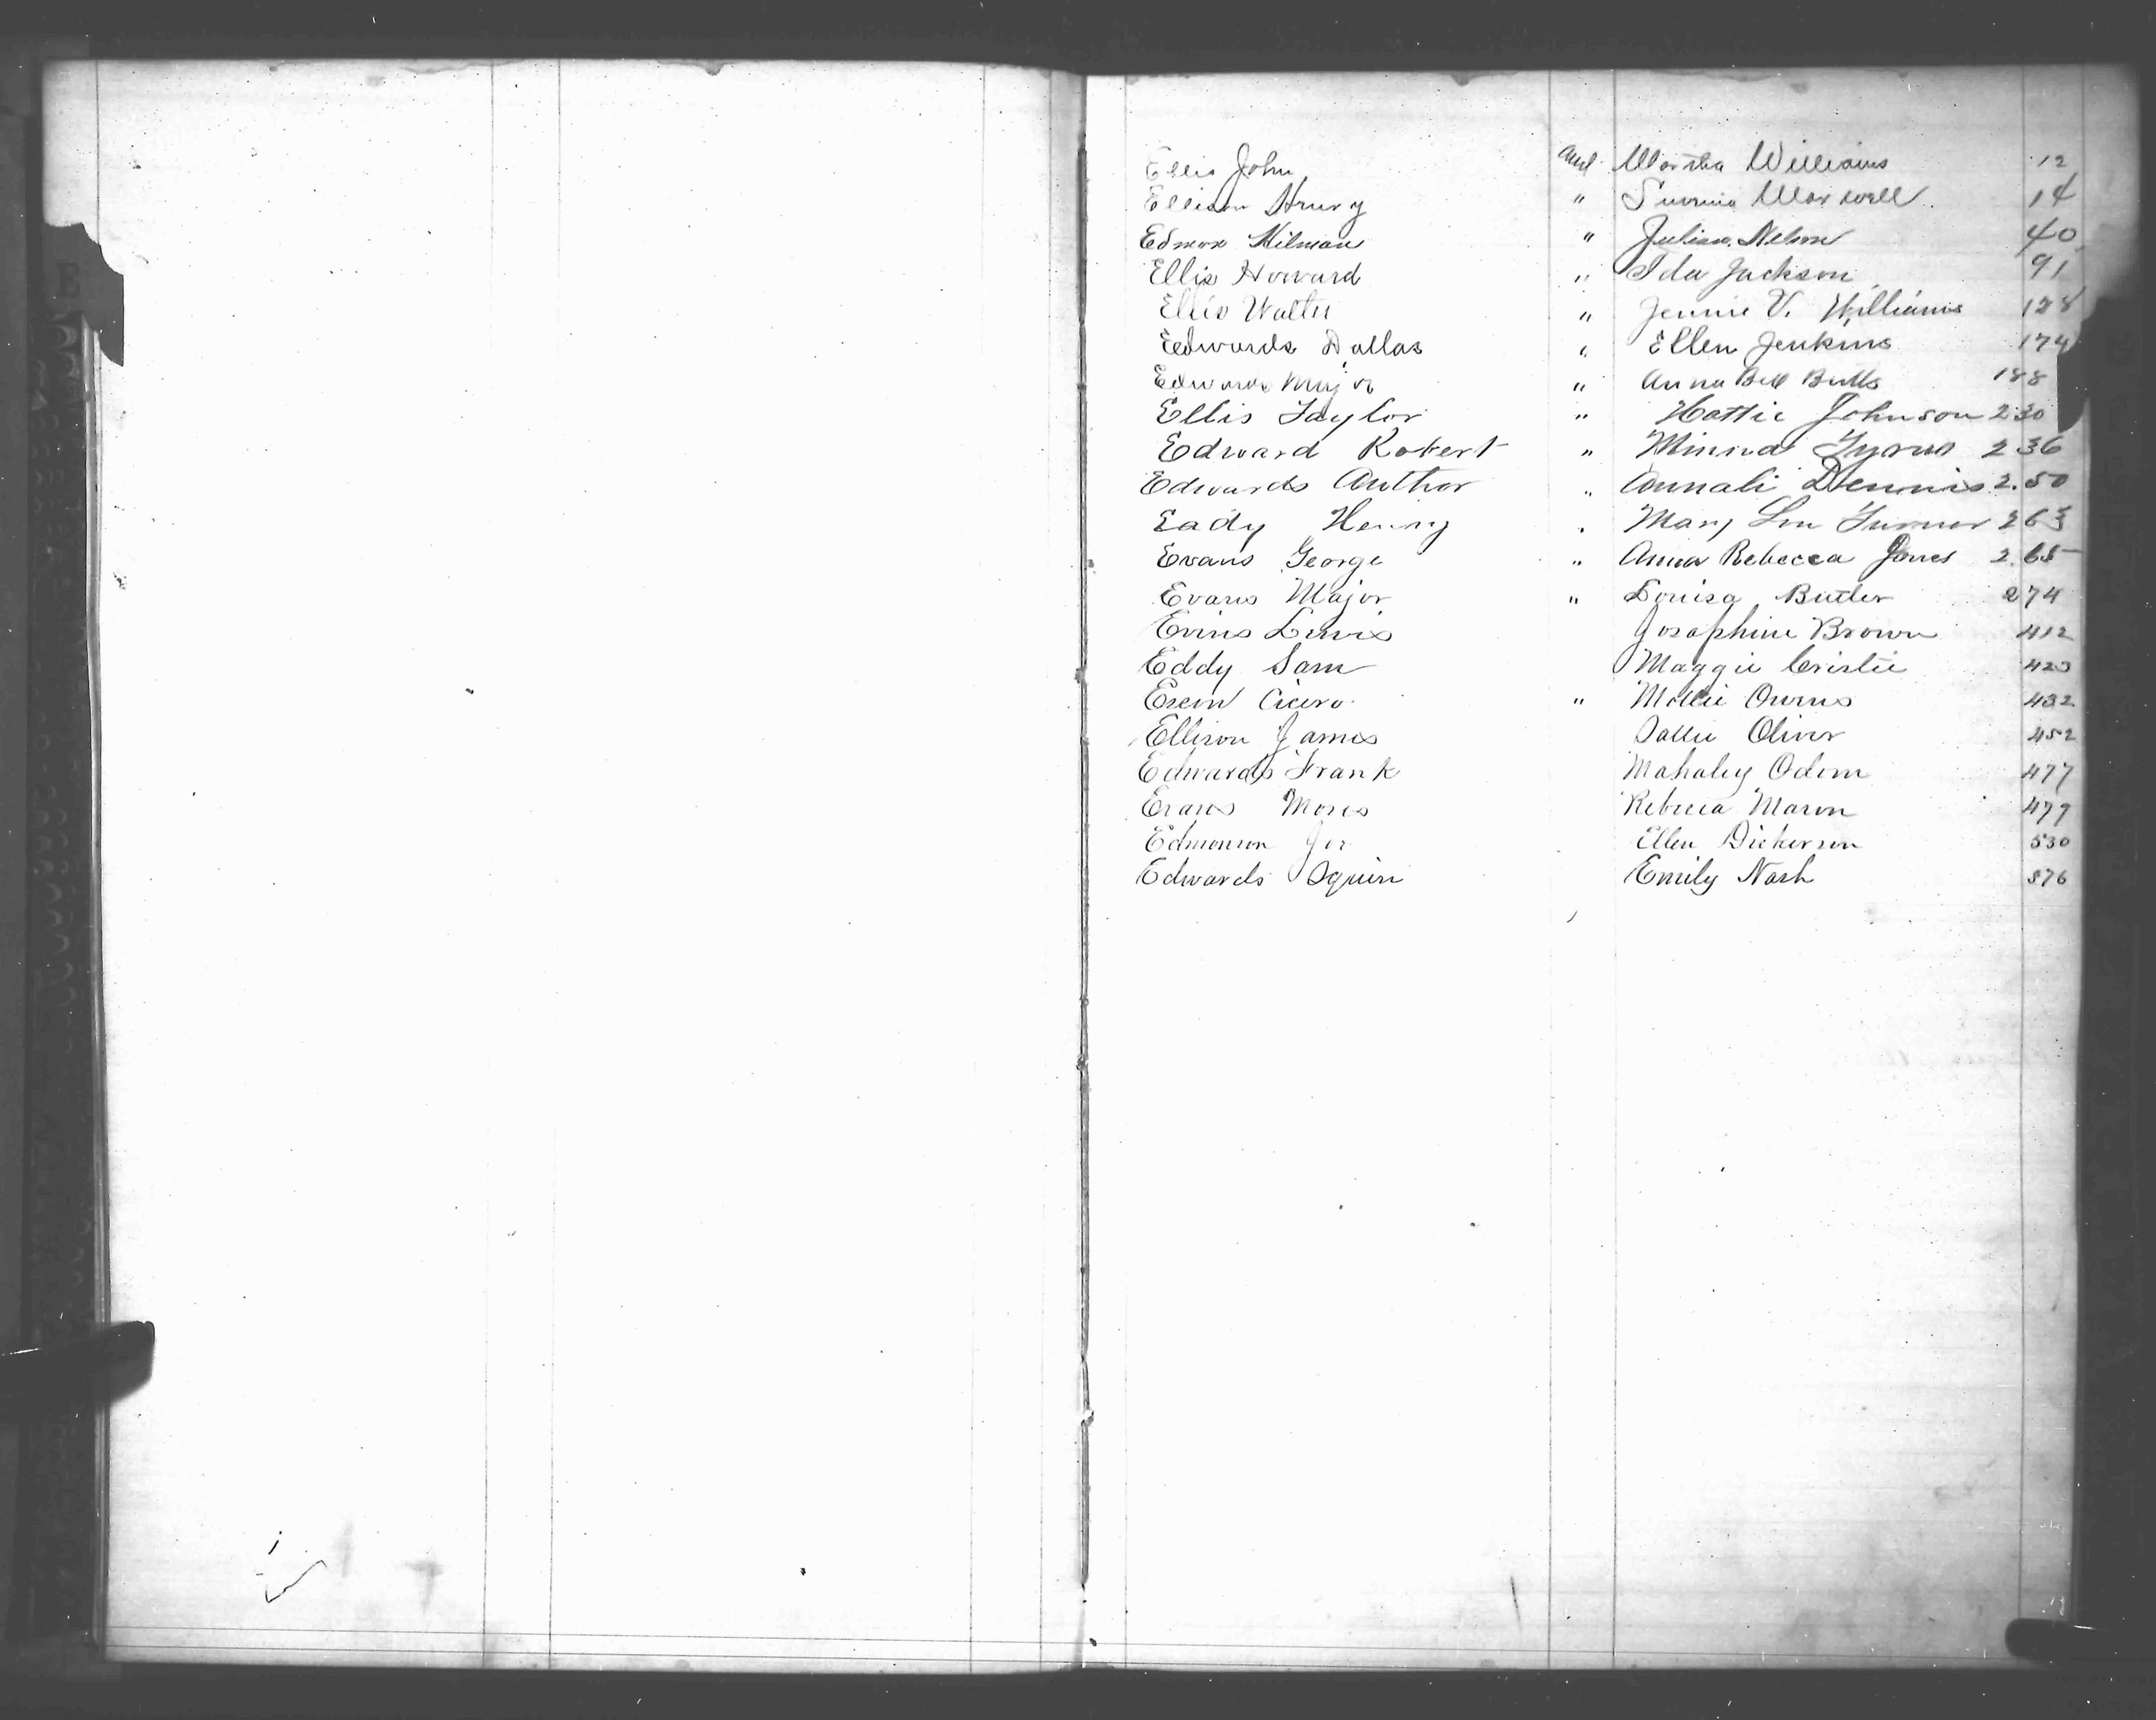 Ellis John and Martha Williams 12
Ellison Henry " Maxwell 14
Edmon " Julian Nelson 40
Ellis Howard " Ida Jackson 91
Ellis Walter " Jennie V. Williams 128
Edwards Dallas " Ellen Jenkins 174
Edwards Major " Anna Bell Butts 188
Ellis Taylor " Hattie Johnson 230
Edward Robert " 236
Edwards Author " Annali Dennis 250
Eady Henry " Mary Lou Turner 263
Evans George " Anna Rebecca Jones 265
Evans Major " Louisa Butler 274
Evins Lewis Josephine Brown 412
Eddy Sam Maggie Cristie 423
Cicero " Mollie Owens 432
Ellison James Sallie Oliver 452
Edwards Frank Mahaley Odom 477
Evans Moses Rebecca Mason 479
Edmonson Joe Ellen Dickerson 530
Edwards Squire Emily Nash 576